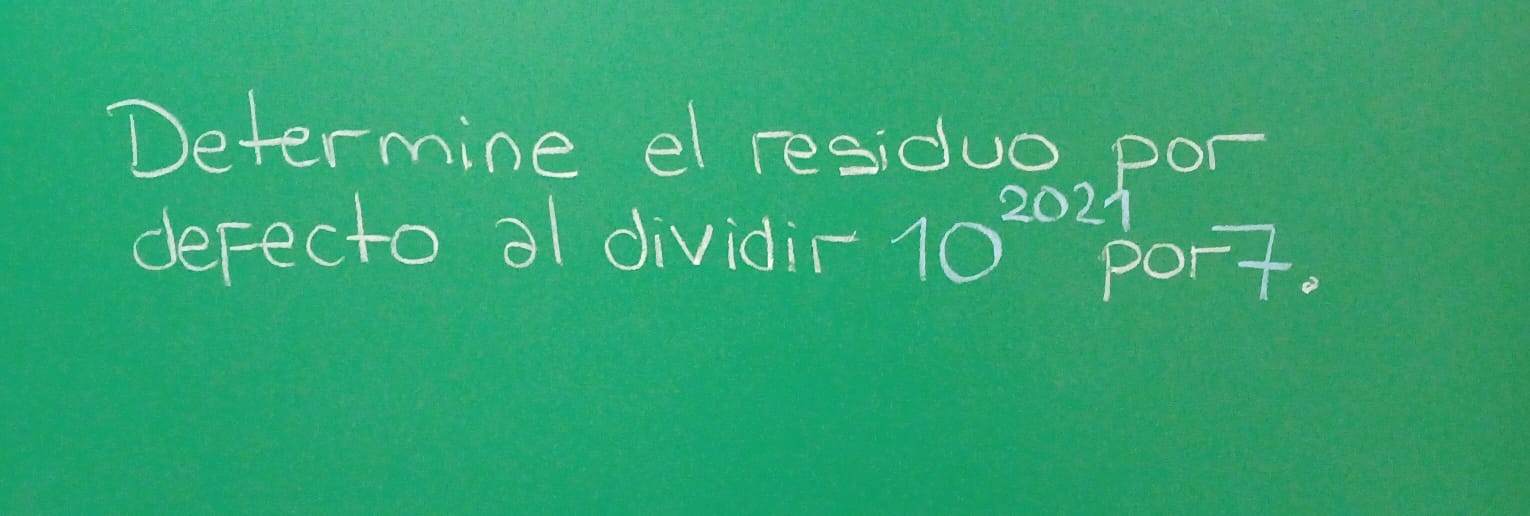 Determine el residuo por
defecto al dividir 10²⁰²¹ por 7.